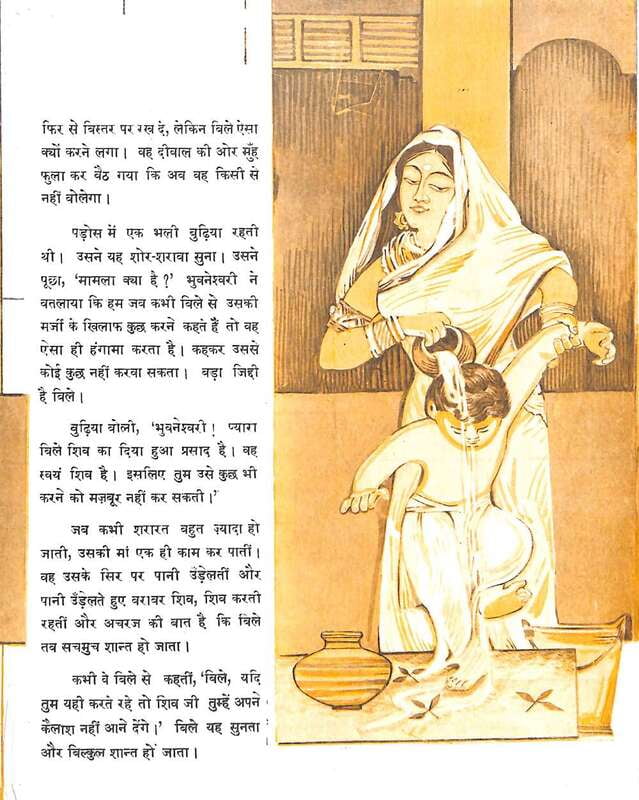 फिर से बिस्तर पर रख दे, लेकिन बिले ऐसा
क्यों करने लगा। वह दीवाल की ओर मुँह
फुला कर बैठ गया कि अब वह किसी से
नहीं बोलेगा।
पड़ोस में एक भली बुढ़िया रहती
थी। उसने यह शोर-शराबा सुना। उसने
पूछा, 'मामला क्या है?' भुवनेश्वरी ने
बतलाया कि हम जब कभी बिले से उसकी
मर्जी के खिलाफ कुछ करने कहते हैं तो वह
ऐसा ही हंगामा करता है। कहकर उससे
कोई कुछ नहीं करवा सकता। बड़ा जिद्दी
है बिले।
बुढ़िया बोली, 'भुवनेश्वरी! प्यारा
बिले शिव का दिया हुआ प्रसाद है। वह
स्वयं शिव है। इसलिए तुम उसे कुछ भी
करने को मज़बूर नहीं कर सकती।'
जब कभी शरारत बहुत ज़्यादा हो
जाती, उसकी मां एक ही काम कर पातीं।
वह उसके सिर पर पानी उँड़ेलतीं और
पानी उँड़ेलते हुए बराबर शिव, शिव करती
रहतीं और अचरज की बात है कि बिले
तब सचमुच शान्त हो जाता।
कभी वे बिले से कहतीं, 'बिले, यदि
तुम यही करते रहे तो शिव जी तुम्हें अपने
कैलाश नहीं आने देंगे।' बिले यह सुनता
और बिल्कुल शान्त हो जाता।